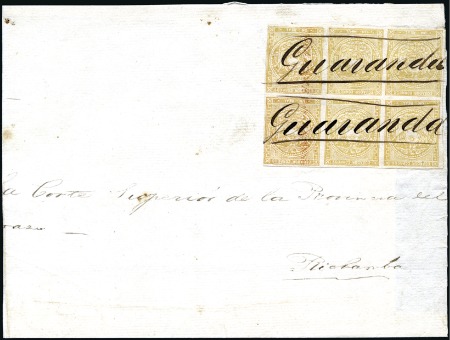 Guaranda
Guaranda
la Corte Superior de la Provincia del
razo —
Riobamba